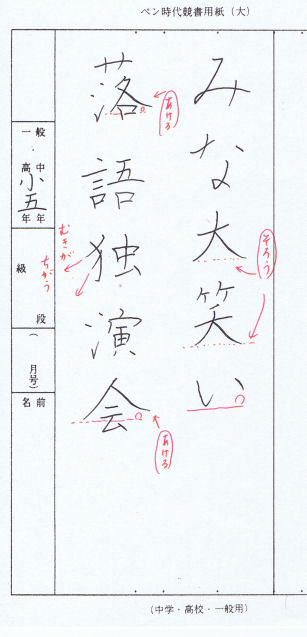 ペン時代競書用紙（大）
みな大笑い
落語独演会
そろう
あける
むきが
ちがう
あける
一般・高中小五年年
級段
（月号）
名前
（中学・高校・一般用）